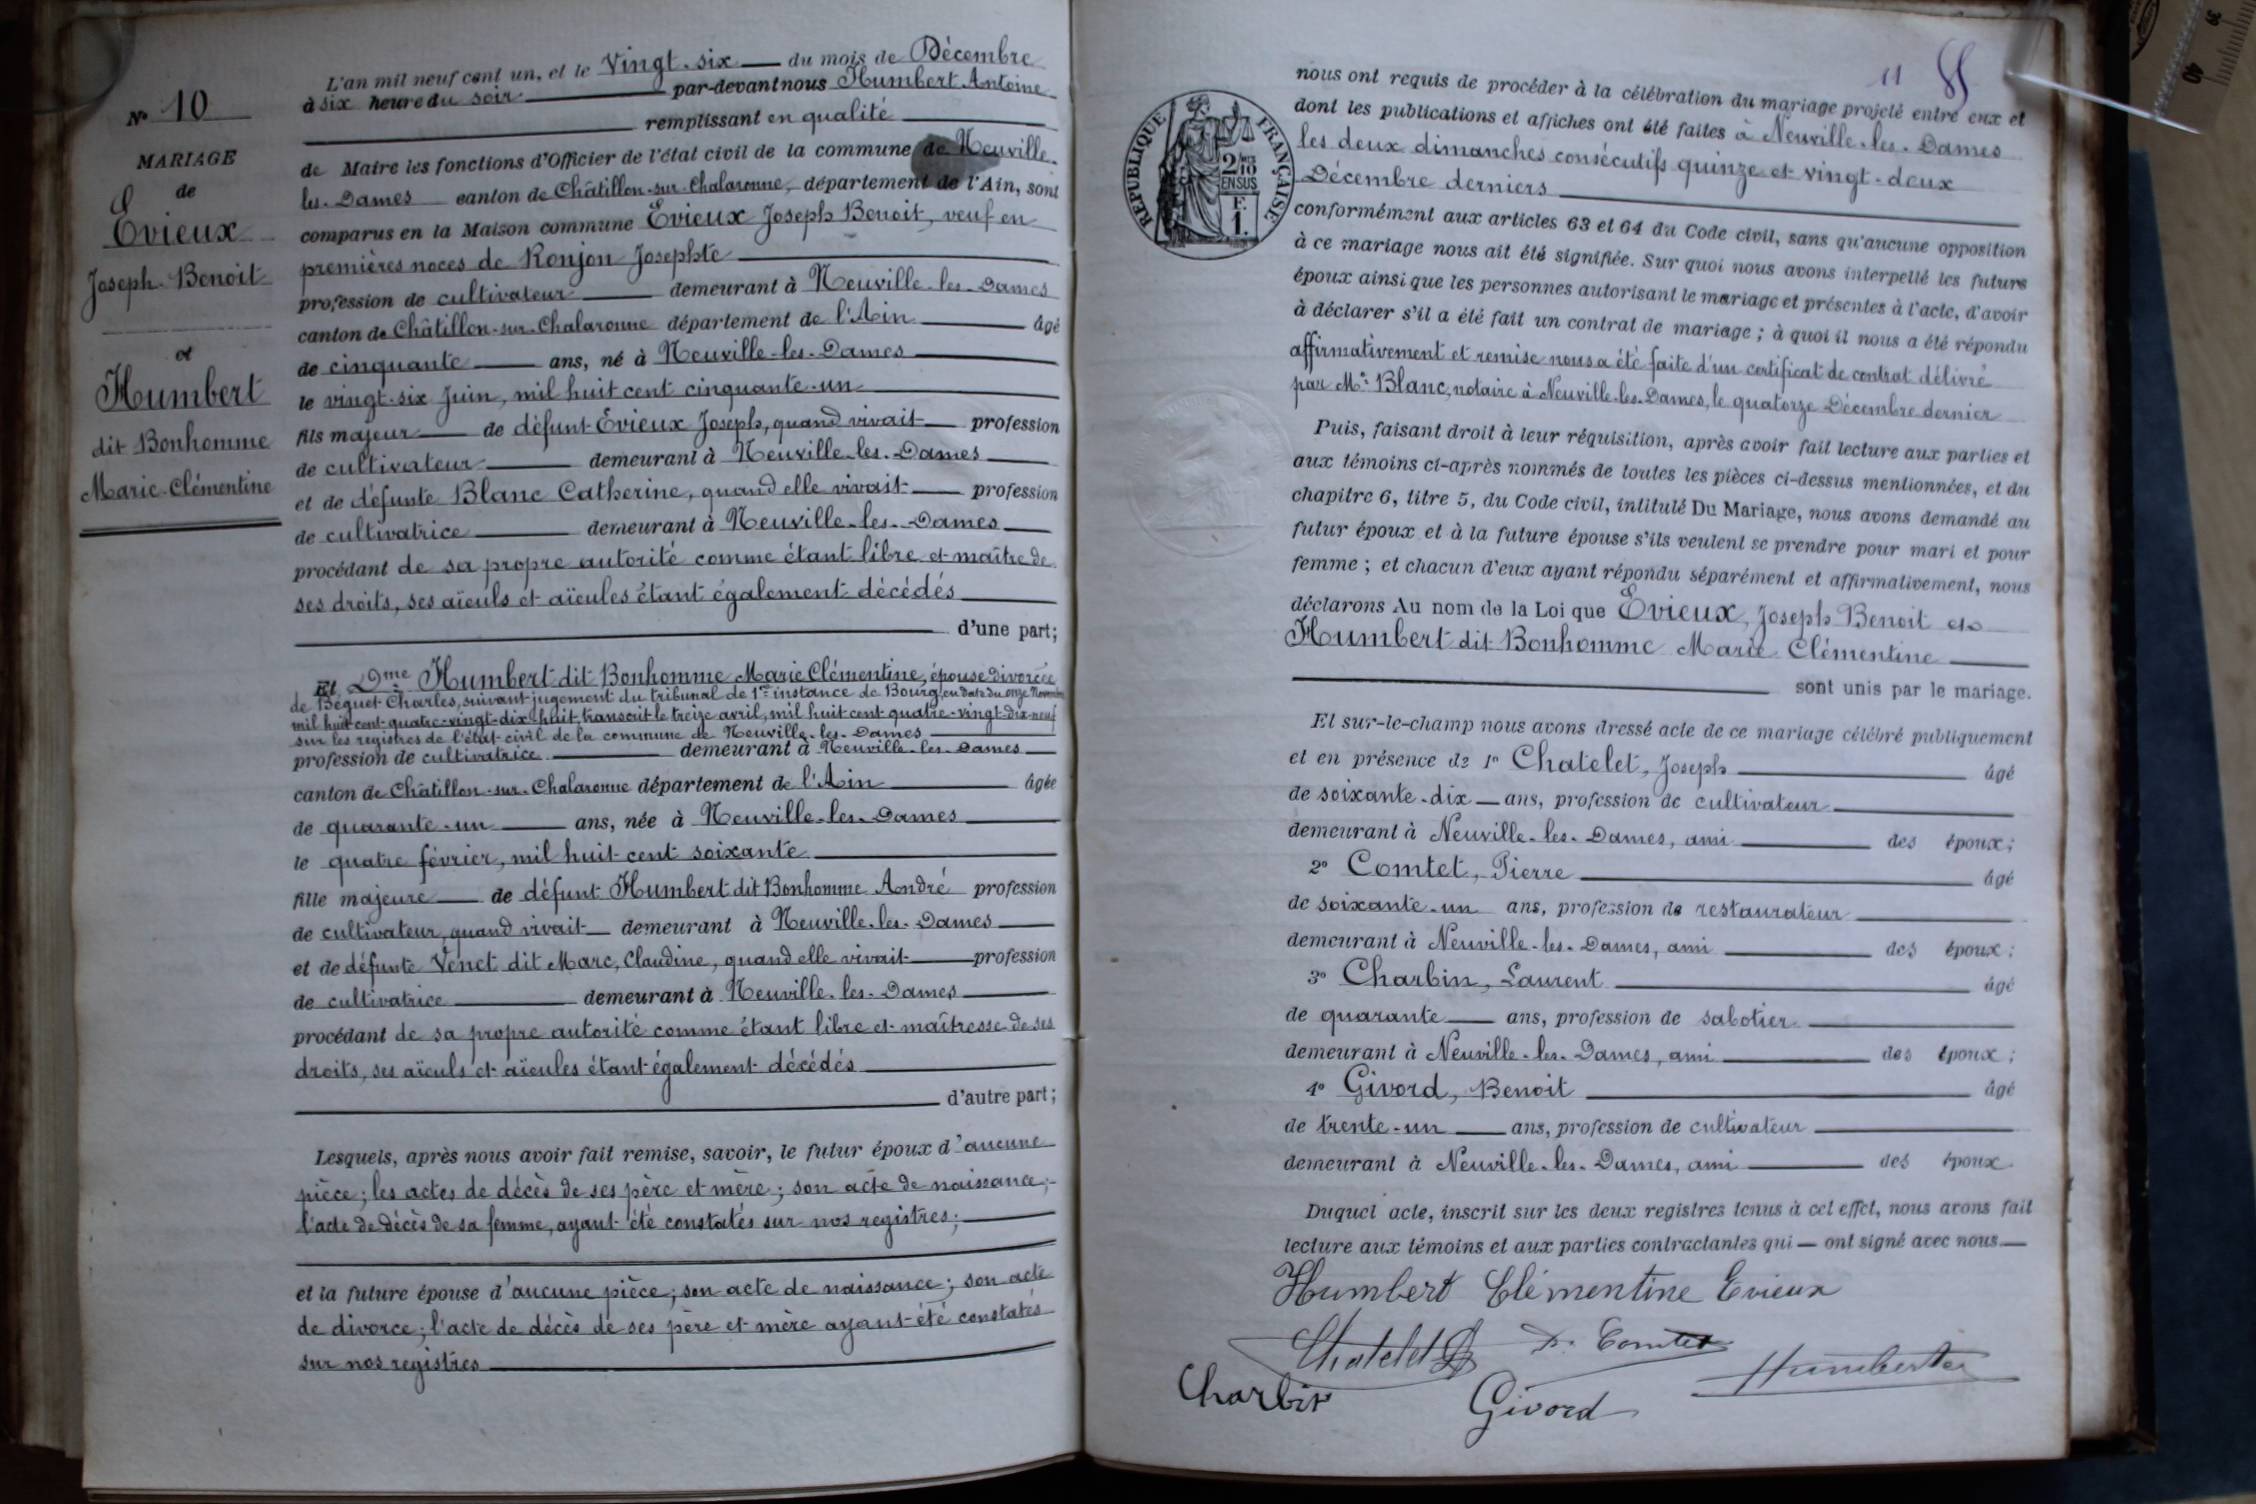 N° 10
MARIAGE
de
Evieux
Joseph Benoit
et
Humbert
dit Bonhomme
Marie-Clémentine
L'an mil neuf cent un, et le Vingt-six du mois de Décembre
à six heure du soir par-devant nous Humbert Antoine
remplissant en qualité
de Maire les fonctions d'Officier de l'état civil de la commune de Neuville-
les-Dames canton de Châtillon-sur-Chalaronne, département de l'Ain, sont
comparus en la Maison commune Evieux Joseph Benoit, veuf en
premières noces de Ronjon Josephte
profession de cultivateur demeurant à Neuville-les-Dames
canton de Châtillon-sur-Chalaronne département de l'Ain âgé
de cinquante ans, né à Neuville-les-Dames
le vingt-six Juin, mil huit cent cinquante-un
fils majeur de défunt Evieux Joseph, quand vivait profession
de cultivateur demeurant à Neuville-les-Dames
et de défunte Blanc Catherine, quand elle vivait profession
de cultivatrice demeurant à Neuville-les-Dames
procédant de sa propre autorité comme étant libre et maître de
ses droits, ses aïeuls et aïeules étant également décédés
d'une part;
Et Dme Humbert dit Bonhomme Marie Clémentine, épouse divorcée
de Béguet Charles, suivant jugement du tribunal de 1re instance de Bourg, en date du onze Novembre
mil huit cent quatre-vingt-dix-huit, transcrit le treize avril, mil huit cent quatre-vingt-dix-neuf
sur les registres de l'état-civil de la commune de Neuville-les-Dames
profession de cultivatrice demeurant à Neuville-les-Dames
canton de Châtillon-sur-Chalaronne département de l'Ain âgée
de quarante-un ans, née à Neuville-les-Dames
le quatre février, mil huit cent soixante
fille majeure de défunt Humbert dit Bonhomme André profession
de cultivateur, quand vivait demeurant à Neuville-les-Dames
et de défunte Venet dit Marc, Claudine, quand elle vivait profession
de cultivatrice demeurant à Neuville-les-Dames
procédant de sa propre autorité comme étant libre et maîtresse de ses
droits, ses aïeuls et aïeules étant également décédés
d'autre part;
Lesquels, après nous avoir fait remise, savoir, le futur époux d'aucune
pièce; les actes de décès de ses père et mère; son acte de naissance;
l'acte de décès de sa femme, ayant été constatés sur nos registres;
et la future épouse d'aucune pièce; son acte de naissance; son acte
de divorce; l'acte de décès de ses père et mère ayant été constatés
sur nos registres
11
RÉPUBLIQUE FRANÇAISE
2/10
EN SUS
F.
1.
nous ont requis de procéder à la célébration du mariage projeté entre eux et
dont les publications et affiches ont été faites à Neuville-les-Dames
les deux dimanches consécutifs quinze et vingt-deux
Décembre derniers
conformément aux articles 63 et 64 du Code civil, sans qu'aucune opposition
à ce mariage nous ait été signifiée. Sur quoi nous avons interpellé les futurs
époux ainsi que les personnes autorisant le mariage et présentes à l'acte, d'avoir
à déclarer s'il a été fait un contrat de mariage; à quoi il nous a été répondu
affirmativement et remise nous a été faite d'un certificat de contrat délivré
par Me Blanc, notaire à Neuville-les-Dames, le quatorze Décembre dernier
Puis, faisant droit à leur réquisition, après avoir fait lecture aux parties et
aux témoins ci-après nommés de toutes les pièces ci-dessus mentionnées, et du
chapitre 6, titre 5, du Code civil, intitulé Du Mariage, nous avons demandé au
futur époux et à la future épouse s'ils veulent se prendre pour mari et pour
femme; et chacun d'eux ayant répondu séparément et affirmativement, nous
déclarons Au nom de la Loi que Evieux, Joseph Benoit et
Humbert dit Bonhomme Marie Clémentine
sont unis par le mariage.
Et sur-le-champ nous avons dressé acte de ce mariage célébré publiquement
et en présence de 1° Chatelet, Joseph âgé
de soixante-dix ans, profession de cultivateur
demeurant à Neuville-les-Dames, ami des époux;
2° Comtet, Pierre âgé
de soixante-un ans, profession de restaurateur
demeurant à Neuville-les-Dames, ami des époux;
3° Charbin, Laurent âgé
de quarante ans, profession de sabotier
demeurant à Neuville-les-Dames, ami des époux;
4° Givord, Benoit âgé
de trente-un ans, profession de cultivateur
demeurant à Neuville-les-Dames, ami des époux.
Duquel acte, inscrit sur les deux registres tenus à cet effet, nous avons fait
lecture aux témoins et aux parties contractantes qui ont signé avec nous
Humbert Clémentine Evieux
Chatelet P. Comtet
Humbert
Charbin Givord
39
40